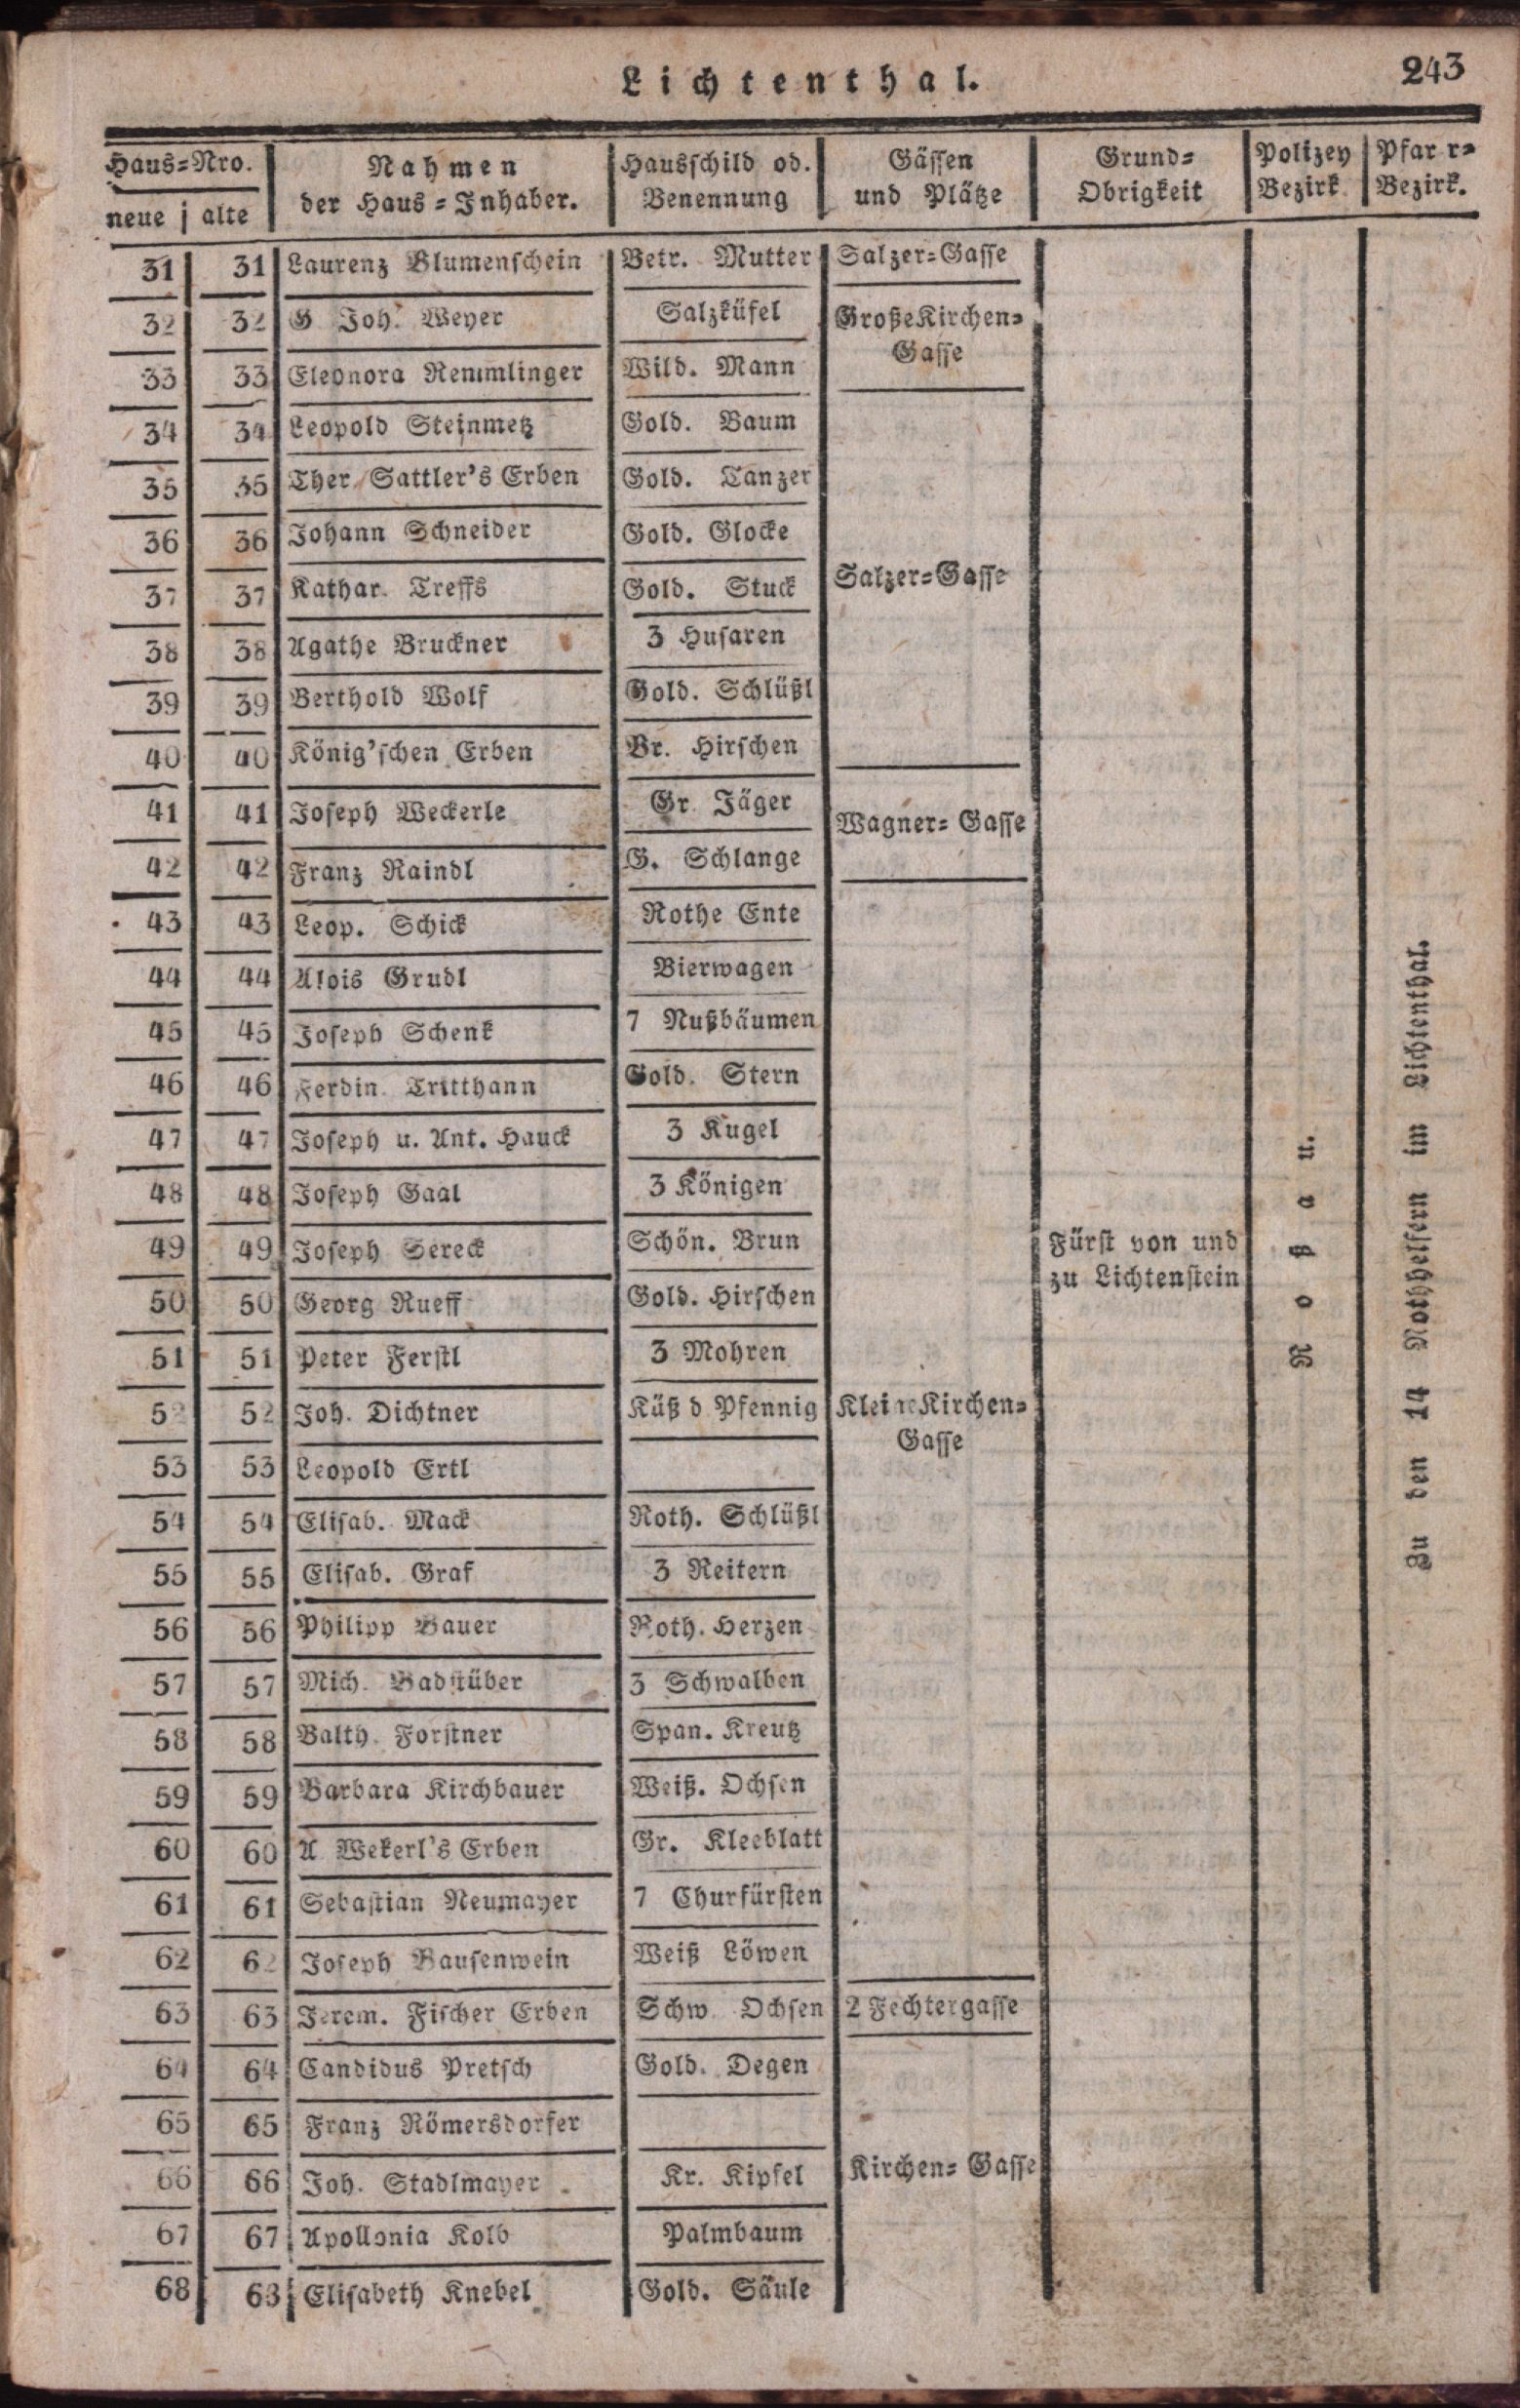 Lichtenthal.
243
Haus=Nro.
neue | alte
Nahmen
der Haus=Inhaber.
Hausschild od.
Benennung
Gässen
und Plätze
Grund=
Obrigkeit
Polizey
Bezirk
Pfarr=
Bezirk.
31 31 Laurenz Blumenschein Betr. Mutter Salzer=Gasse
32 32 G Joh. Weyer Salzküfel Große Kirchen=
Gasse
33 33 Eleonora Remmlinger Wild. Mann
34 34 Leopold Steinmetz Gold. Baum
35 35 Ther. Sattler's Erben Gold. Tanzer
36 36 Johann Schneider Gold. Glocke
37 37 Kathar. Treffs Gold. Stuck Salzer=Gasse
38 38 Agathe Bruckner 3 Husaren
39 39 Berthold Wolf Gold. Schlüßl
40 40 König'schen Erben Br. Hirschen
41 41 Joseph Weckerle Gr. Jäger Wagner=Gasse
42 42 Franz Raindl G. Schlange
43 43 Leop. Schick Rothe Ente
44 44 Alois Grudl Bierwagen
45 45 Joseph Schenk 7 Nußbäumen
46 46 Ferdin. Tritthann Gold. Stern
47 47 Joseph u. Ant. Hauck 3 Kugel
48 48 Joseph Gaal 3 Königen
49 49 Joseph Sereck Schön. Brun
Fürst von und
zu Lichtenstein
50 50 Georg Rueff Gold. Hirschen
51 51 Peter Ferstl 3 Mohren
52 52 Joh. Dichtner Küß d Pfennig Kleine Kirchen=
Gasse
53 53 Leopold Ertl
54 54 Elisab. Mack Roth. Schlüßl
55 55 Elisab. Graf 3 Reitern
56 56 Philipp Bauer Roth. Herzen
57 57 Mich. Badstüber 3 Schwalben
58 58 Balth. Forstner Span. Kreutz
59 59 Barbara Kirchbauer Weiß. Ochsen
60 60 A Wekerl's Erben Gr. Kleeblatt
61 61 Sebastian Neumayer 7 Churfürsten
62 62 Joseph Bausenwein Weiß Löwen
63 63 Jerem. Fischer Erben Schw. Ochsen 2 Fechtergasse
64 64 Candidus Pretsch Gold. Degen
65 65 Franz Römersdorfer
66 66 Joh. Stadlmayer Kr. Kipfel Kirchen=Gasse
67 67 Apollonia Kolb Palmbaum
68 63 Elisabeth Knebel Gold. Säule
Roßau.
Zu den 14 Nothhelfern im Lichtenthal.